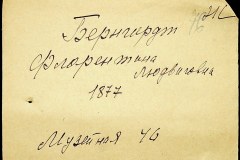 Бернгардт
Флорентина
Людвиговна
1877
Музейная 46